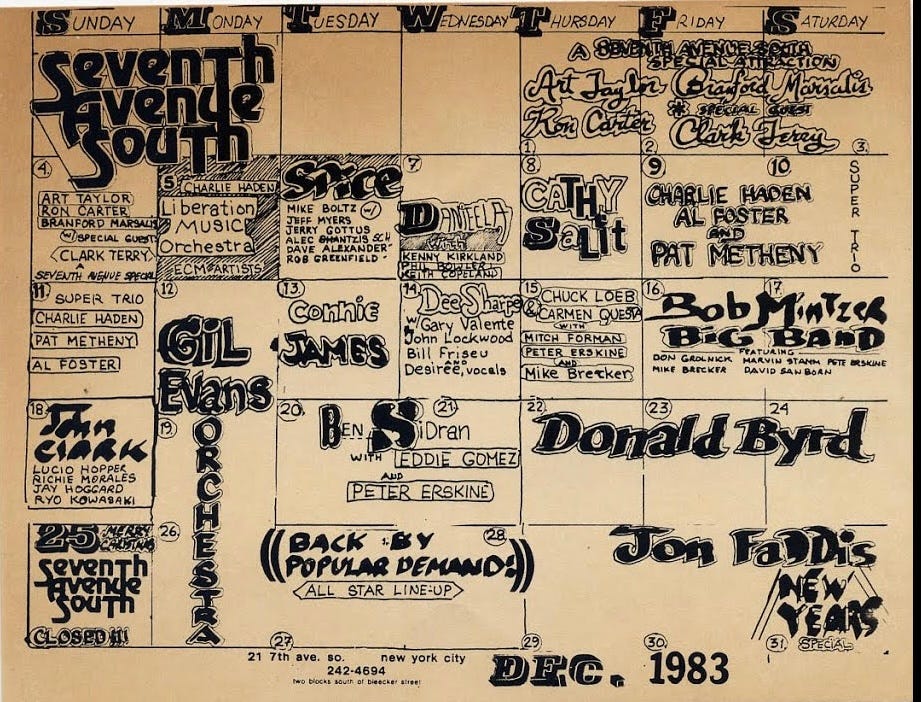 SUNDAY MONDAY TUESDAY WEDNESDAY THURSDAY FRIDAY SATURDAY
Seventh
Avenue
South
A SEVENTH AVENUE SOUTH
SPECIAL ATTRACTION
Art Taylor Branford Marsalis
Ron Carter * SPECIAL GUEST
Clark Terey
1. 2. 3.
4.
ART TAYLOR
RON CARTER
BRANFORD MARSALIS
W/ SPECIAL GUEST
CLARK TERRY
A
SEVENTH AVENUE SPECIAL
5
CHARLIE HADEN
Liberation
MUSIC
Orchestra
ECM ARTISTS
Spice
MIKE BOLTZ W/
JEFF MYERS
JERRY GOTTUS
ALEC
DAVE ALEXANDER
ROB GREENFIELD
7
DANIELA
with
KENNY KIRKLAND
KEITH COPELAND
8
CATHY
Salit
9 10
CHARLIE HADEN
AL FOSTER
AND
PAT METHENY
SUPER TRIO
11
SUPER TRIO
CHARLIE HADEN
PAT METHENY
AL FOSTER
12
GIL
Evans
ORCHESTRA
13.
Connie
JAMES
14.
Dee Sharpe
w/ Gary Valente
John Lockwood
Bill Friseu
AND
Desireé, vocals
15
CHUCK LOEB
& CARMEN QUESTA
WITH
MITCH FORMAN
PETER ERSKINE
AND
Mike Brecker
16 17
Bob Mintzer
BIG BAND
FEATURING
DON GROLNICK MARVIN STAMM PETE ERSKINE
MIKE BRECKER DAVID SANBORN
18
John
CLARK
LUCIO HOPPER
RICHIE MORALES
JAY HOGGARD
RYO KAWASAKI
19.
20. 21.
BEN SIDRAN
WITH EDDIE GOMEZ
AND
PETER ERSKINE
22. 23 24
Donald Byrd
25 MERRY
CHRISTMAS
Seventh
Avenue
South
CLOSED!!!
26.
28.
((BACK BY
POPULAR DEMAND!))
ALL STAR LINE-UP
27
Jon FaDDis
NEW
YEARS
29 30. 31. SPECIAL
21 7th ave. so. new york city
242-4694
two blocks south of bleecker street
DEC. 1983